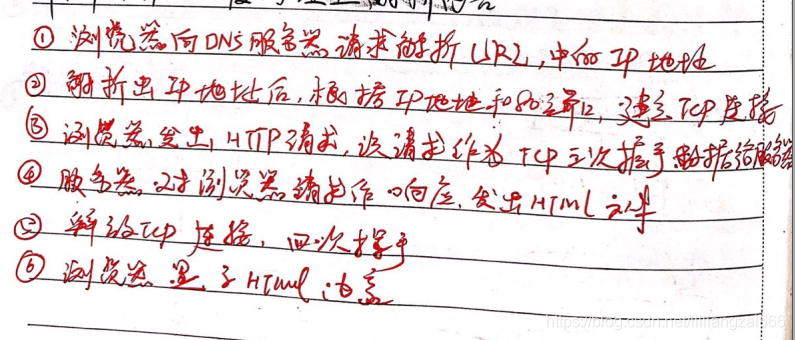 ① 浏览器向DNS服务器请求解析URL,中的IP地址
② 解析出IP地址后,根据IP地址和80端口,建立TCP连接
③ 浏览器发出HTTP请求,该请求作为TCP三次握手 数据给服务器
④ 服务器对浏览器请求作响应,发出HTML文件
⑤ 释放TCP连接,四次挥手
⑥ 浏览器显示HTML内容